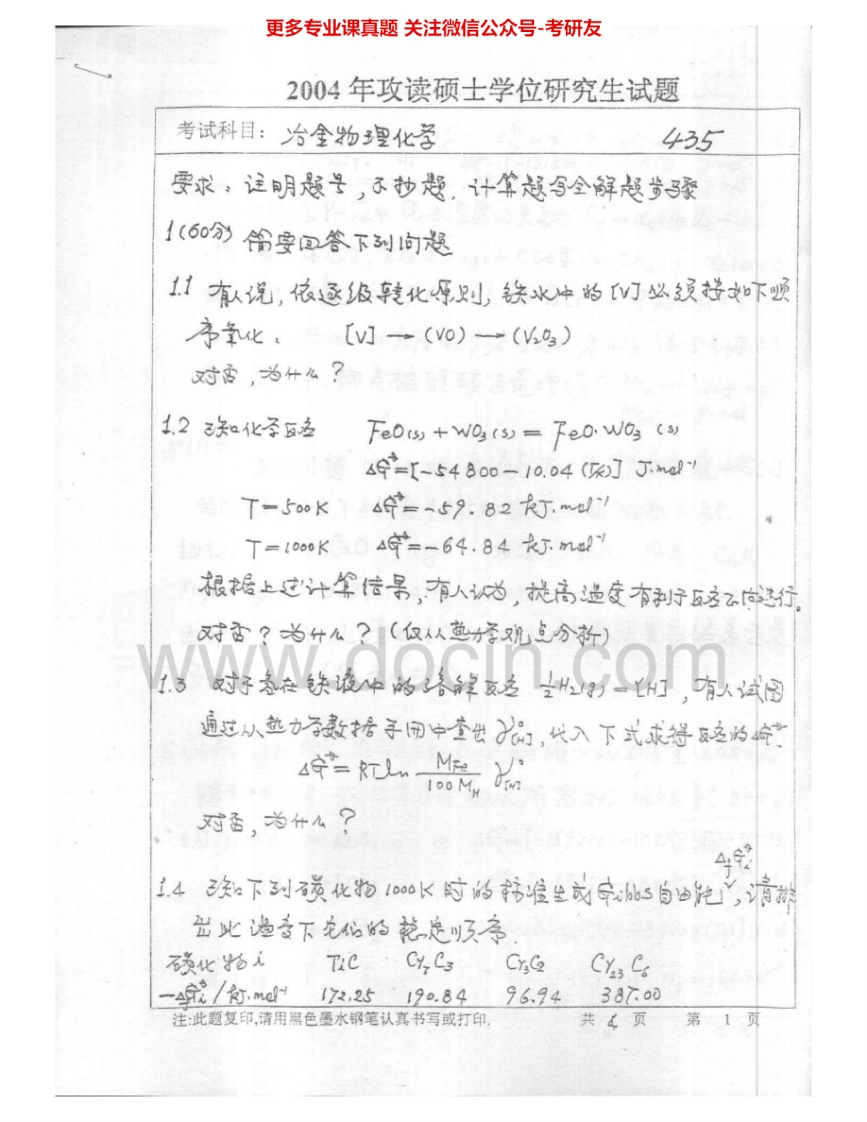 更多专业课真题 关注微信公众号-考研友
2004 年攻读硕士学位研究生试题
考试科目: 冶金物理化学 435
要求:注明题号,不抄题,计算题写全解题步骤
1(60分) 简要回答下列问题
1.1 有人说,依逐级转化原则,铁水中的[V]必须按如下顺
序氧化: [V] → (VO) → (V₂O₃)
对否,为什么?
1.2 已知化学反应 FeO(s) + WO₃(s) = FeO·WO₃ (s)
ΔG°=[-54800-10.04(T/K)] J·mol⁻¹
T=500K ΔG°=-59.82 kJ·mol⁻¹
T=1000K ΔG°=-64.84 kJ·mol⁻¹
根据上述计算结果,有人认为,提高温度有利于反应正向进行。
对否?为什么?(仅从热力学观点分析)
www.docin.com
1.3 对于氢在铁液中的溶解反应 ½H₂(g)=[H],有人试图
通过从热力学数据手册中查出 γ°[H],代入下式求得反应的ΔG°
ΔG°=RTln M_Fe/100M_H γ°[H]
对否,为什么?
1.4 已知下列碳化物1000K时的标准生成Gibbs自由能ΔfG°i,请排
出此温度下它们的稳定顺序.
碳化物i TiC Cr₇C₃ Cr₃C₂ Cr₂₃C₆
-ΔfG°i/kJ·mol⁻¹ 172.25 190.84 96.94 387.00
注:此题复印,请用黑色墨水钢笔认真书写或打印. 共 页 第 1 页